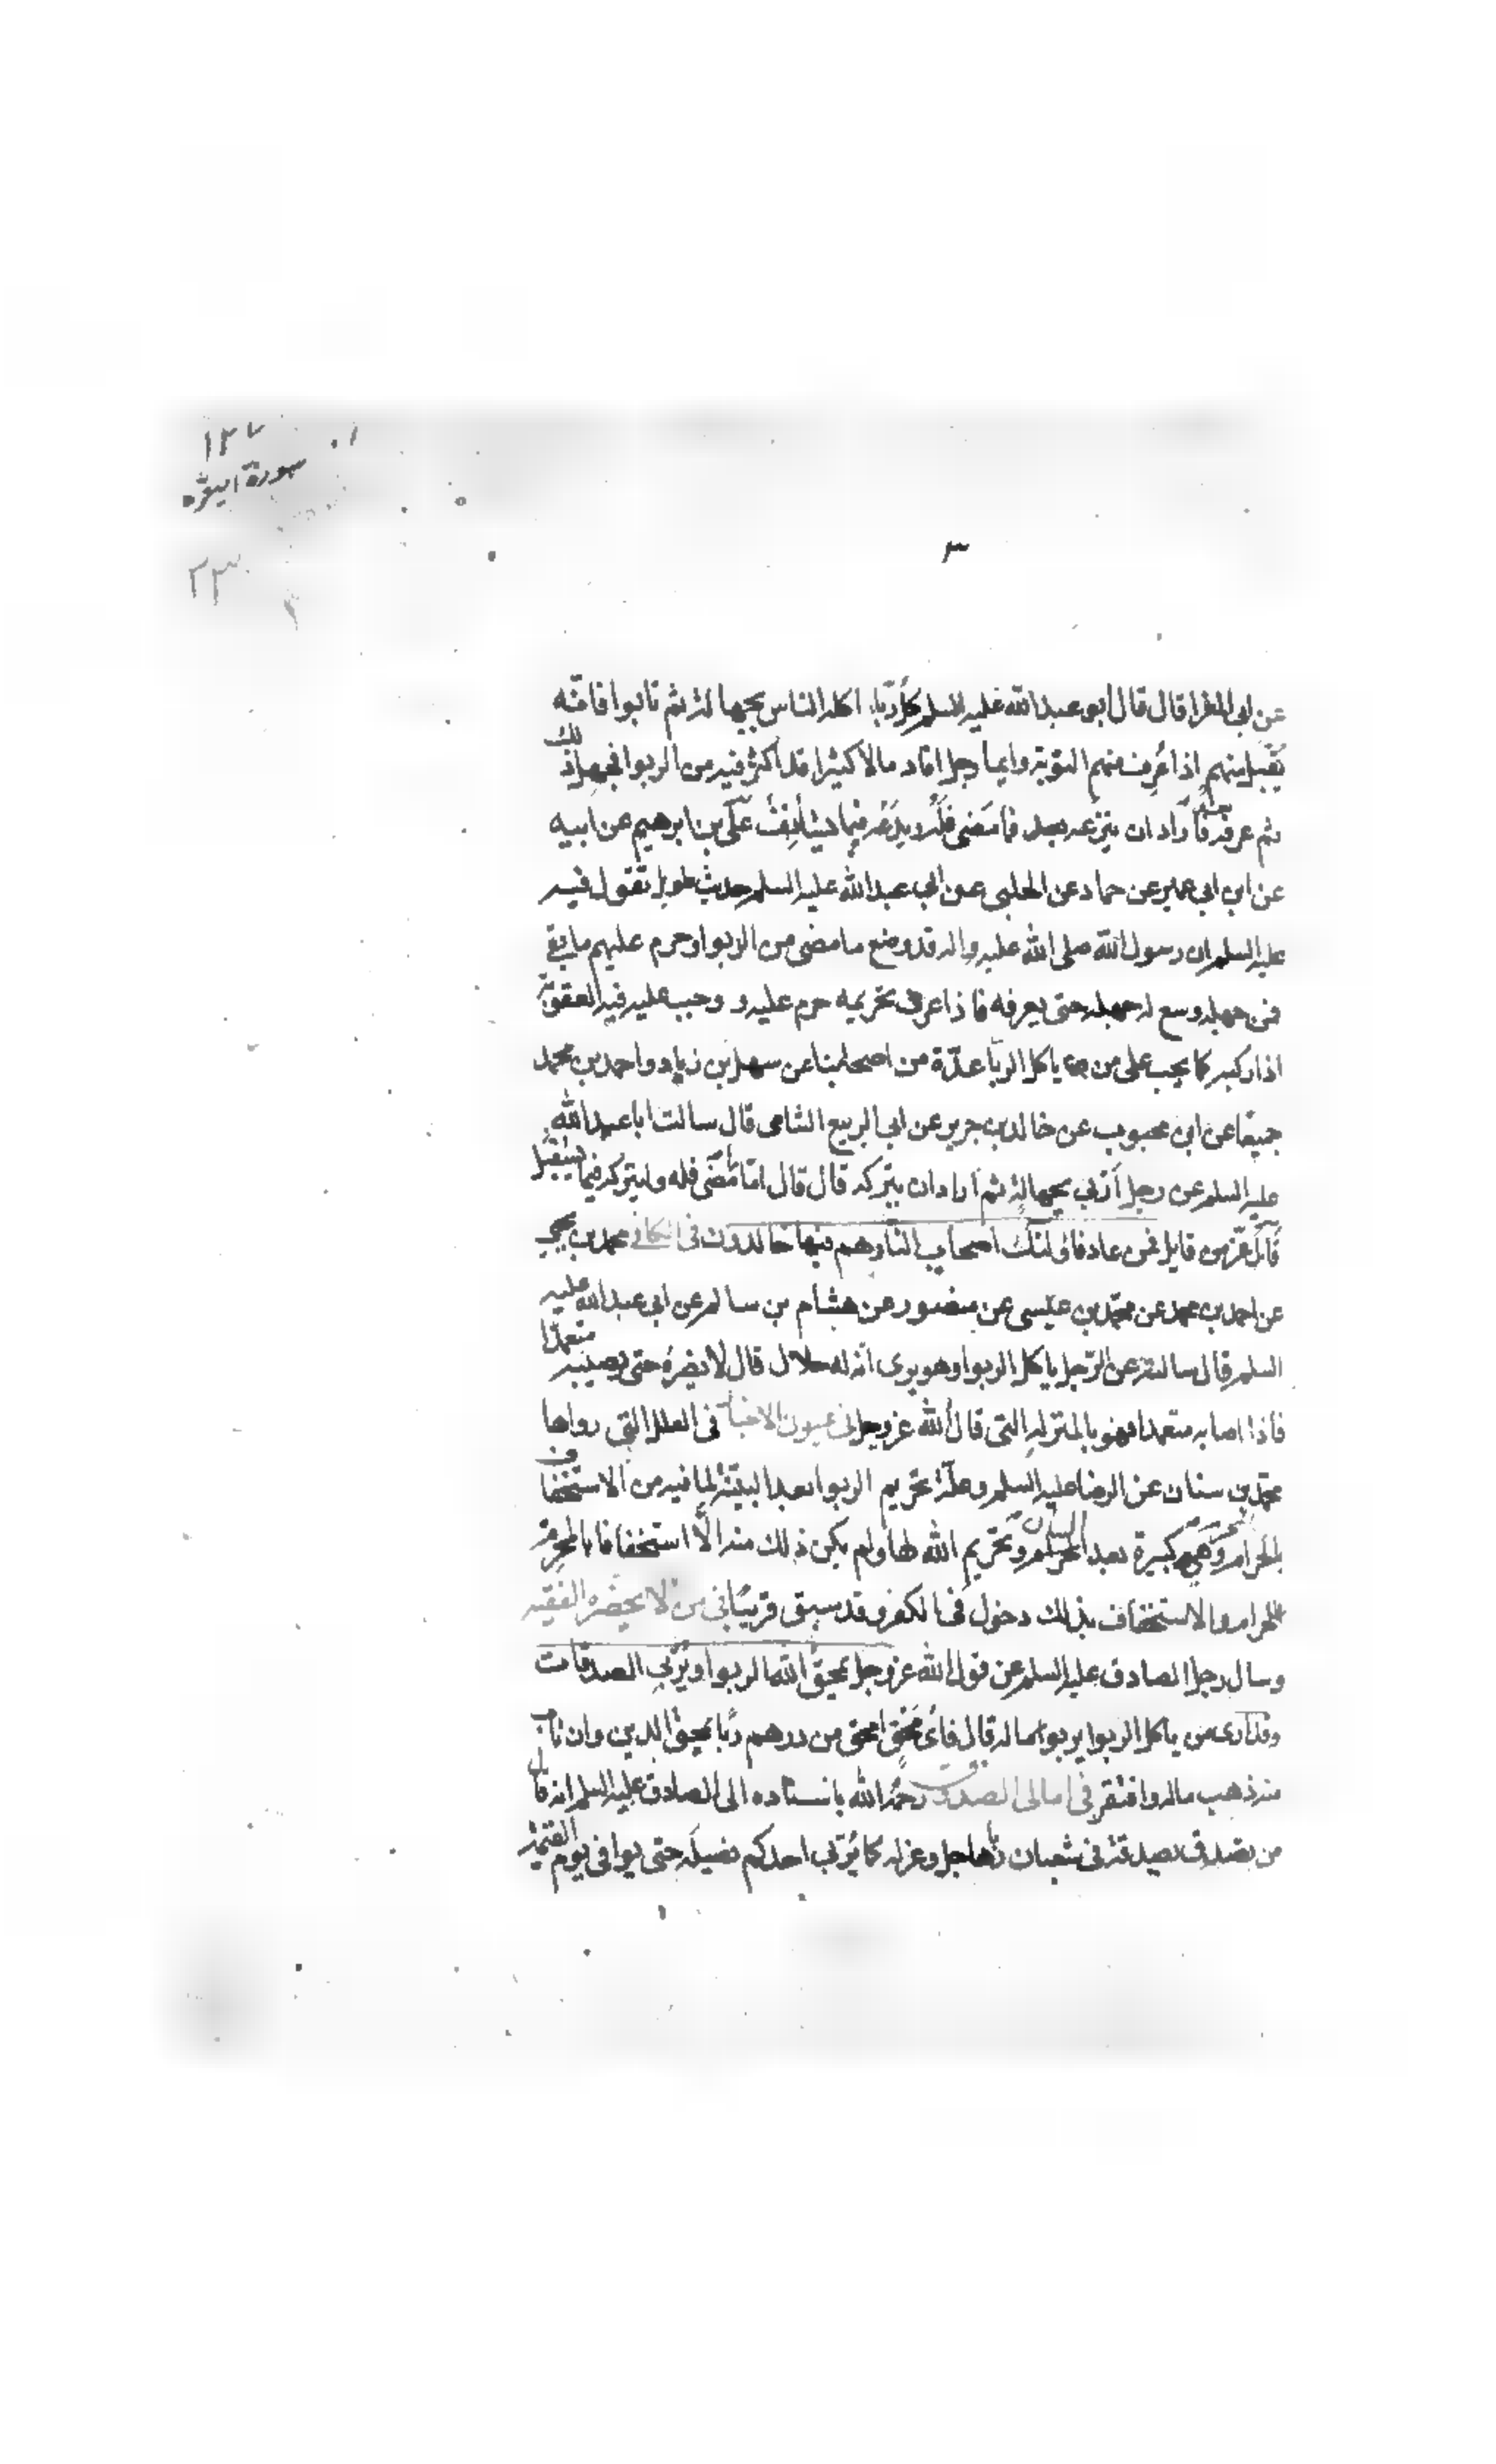 ١٣٧
سورة البقره
٢٣
٣
عن ابى المغرا قال قال ابو عبد الله عليه السلم كل ربا اكله الناس بجهالة ثم تابوا فانه
يقبل منهم اذا عرف منهم التوبة وايما رجل افاد مالا كثيرا قد اكثر فيه من الربوا فجهل ذلك
ثم عرفه بعد فاراد ان ينزعه فما مضى فله ويدعه فيما يستأنف على بن ابرهيم عن ابيه
عن ابن ابى عمير عن حماد عن الحلبى عن ابى عبد الله عليه السلم حديث طويل تقول فيه
عليه السلم ان رسول الله صلى الله عليه واله قد وضع ما مضى من الربوا وحرم عليهم ما بقى
فمن جهله وسع له جهله حتى يعرفه فاذا عرف تحريمه حرم عليه و وجب عليه فيه العقوبة
اذا ركبه كما يجب على من ياكل الربا عدّة من اصحابنا عن سهل بن زياد واحمد بن محمد
جميعا عن ابن محبوب عن خالد بن جرير عن ابى الربيع الشامى قال سالت ابا عبد الله
عليه السلم عن رجل اربى بجهالة ثم اراد ان يتركه قال قال امّا ما مضى فله وليتركه فيما يستقبل
قال عزّ من قايل فمن عاد فاولئك اصحاب النار هم فيها خالدون فى الكافى محمد بن يحيى
عن احمد بن محمد عن محمّد بن عيسى عن منصور عن هشام بن سالم عن ابى عبد الله عليه
السلم قال سالته عن الرّجل ياكل الربوا وهو يرى انّه له حلال قال لا يضره حتى يصيبه متعمّدا
فاذا اصابه متعمدا فهو بالمنزلة التى قال الله عز وجل فى عيون الاخبار فى العلل التى رواها
محمّد بن سنان عن الرضا عليه السلم وعلّة تحريم الربوا بعد البيّنة لما فيه من الاستخفاف
بالحرام المحرم وهى كبيرة بعد البيان وتحريم الله لها ولم يكن ذلك منه الّا استخفافا بالمحرّم
للحرام والاستخفاف بذلك دخول فى الكفر وقد سبق قريبا فى من لا يحضره الفقيه
وسال رجل الصادق عليه السلم عن قول الله عز وجل يمحق الله الربوا ويربى الصدقات
وقد ارى من ياكل الربوا يربو ماله قال فاىّ محق امحق من درهم ربا يمحق الدين وان تاب
منه ذهب ماله وافتقر فى امالى الصدوق رحمه الله باسناده الى الصادق عليه السلم انه قال
من تصدق بصدقة فى شعبان ربّاها جل وعز له كما يربّى احدكم فصيله حتى يوافى يوم القيمة